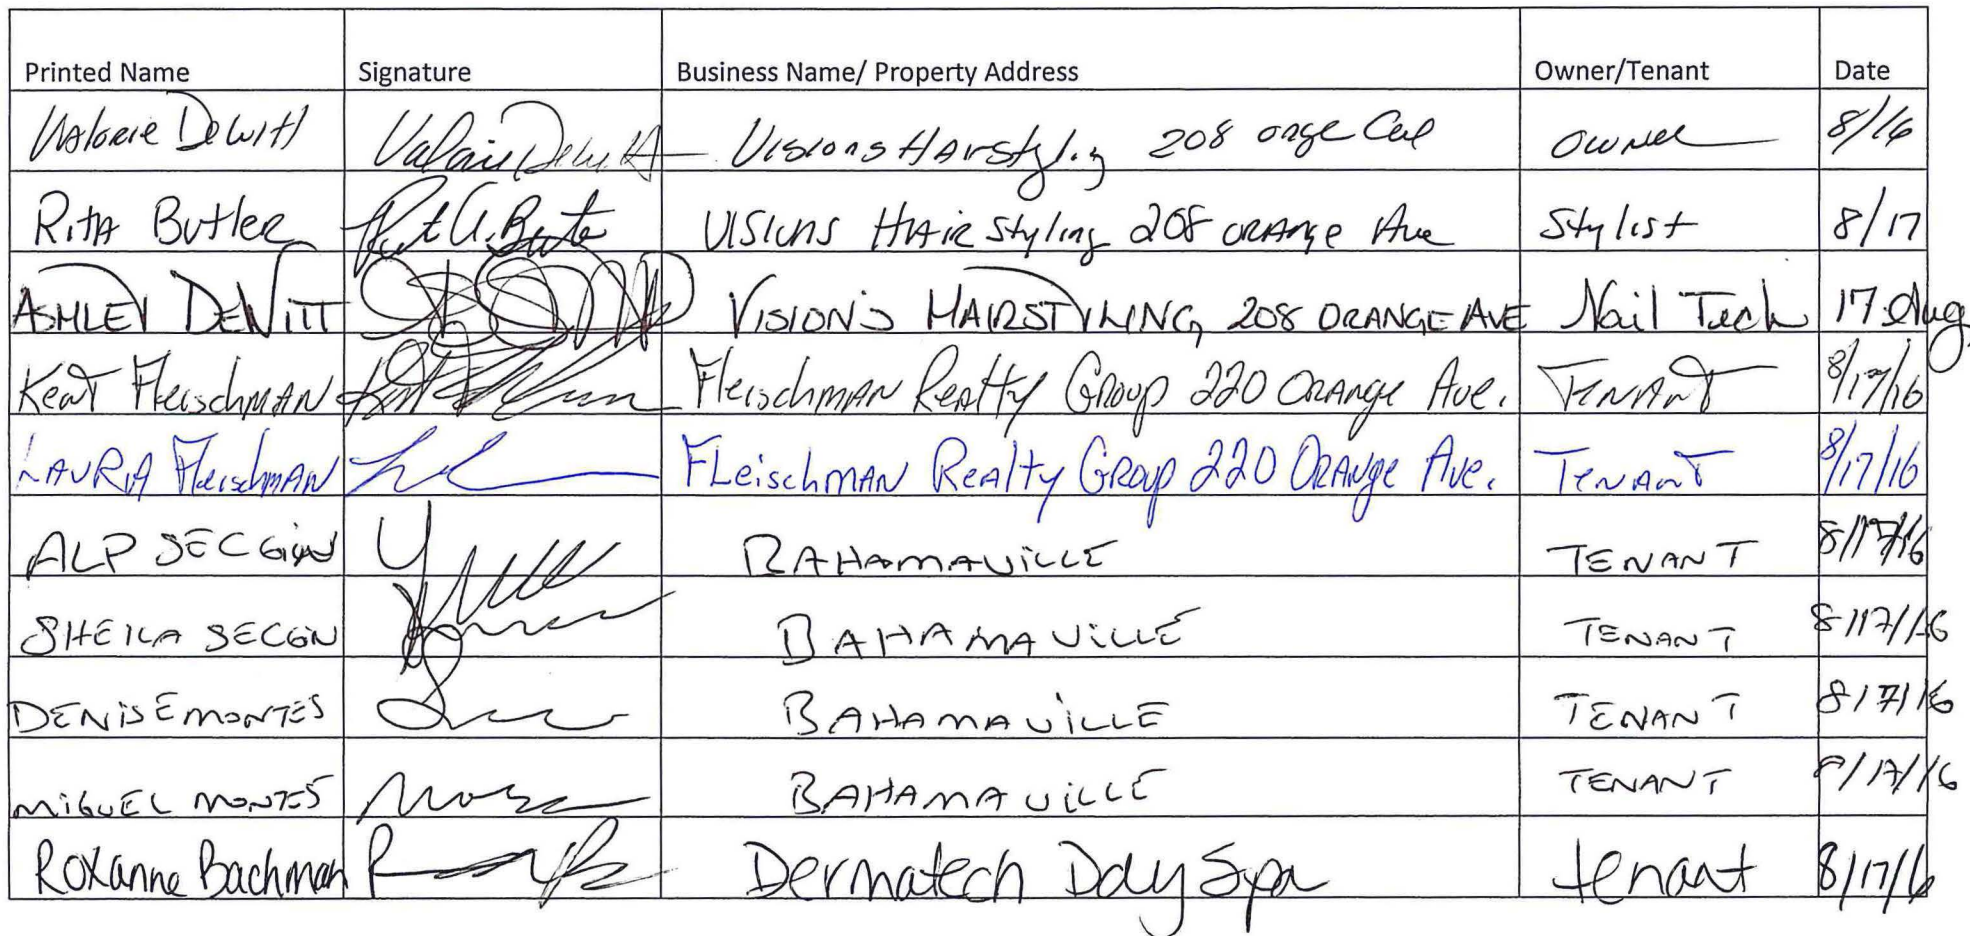 Printed Name Signature Business Name/ Property Address Owner/Tenant Date
Valorie DeWitt Valorie DeWitt Visions HAirstyling 208 owner 8/16
RitA Butler Visions HAir styling 208 orAnge Ave Stylist 8/17
ASHLEY DEWITT VISIONS HAIRSTYLING, 208 ORANGE AVE Nail Tech 17 Aug
Kent FleischmAN FleischmAN Realty Group 220 ORANge Ave. TENANT 8/17/16
LAURA FleischmAN FLeischmAN ReAlty GRoup 220 ORANge Ave. TENANT 8/17/16
ALP SECGIN BAHAMAVILLE TENANT 8/17/16
SHEILA SECGIN BAHAMAVILLE TENANT 8/17/16
DENISE MONTES BAHAMAVILLE TENANT 8/17/16
MIGUEL MONTES BAHAMAVILLE TENANT 8/17/16
Roxanne Bachman Dermatech Day Spa tenant 8/17/16